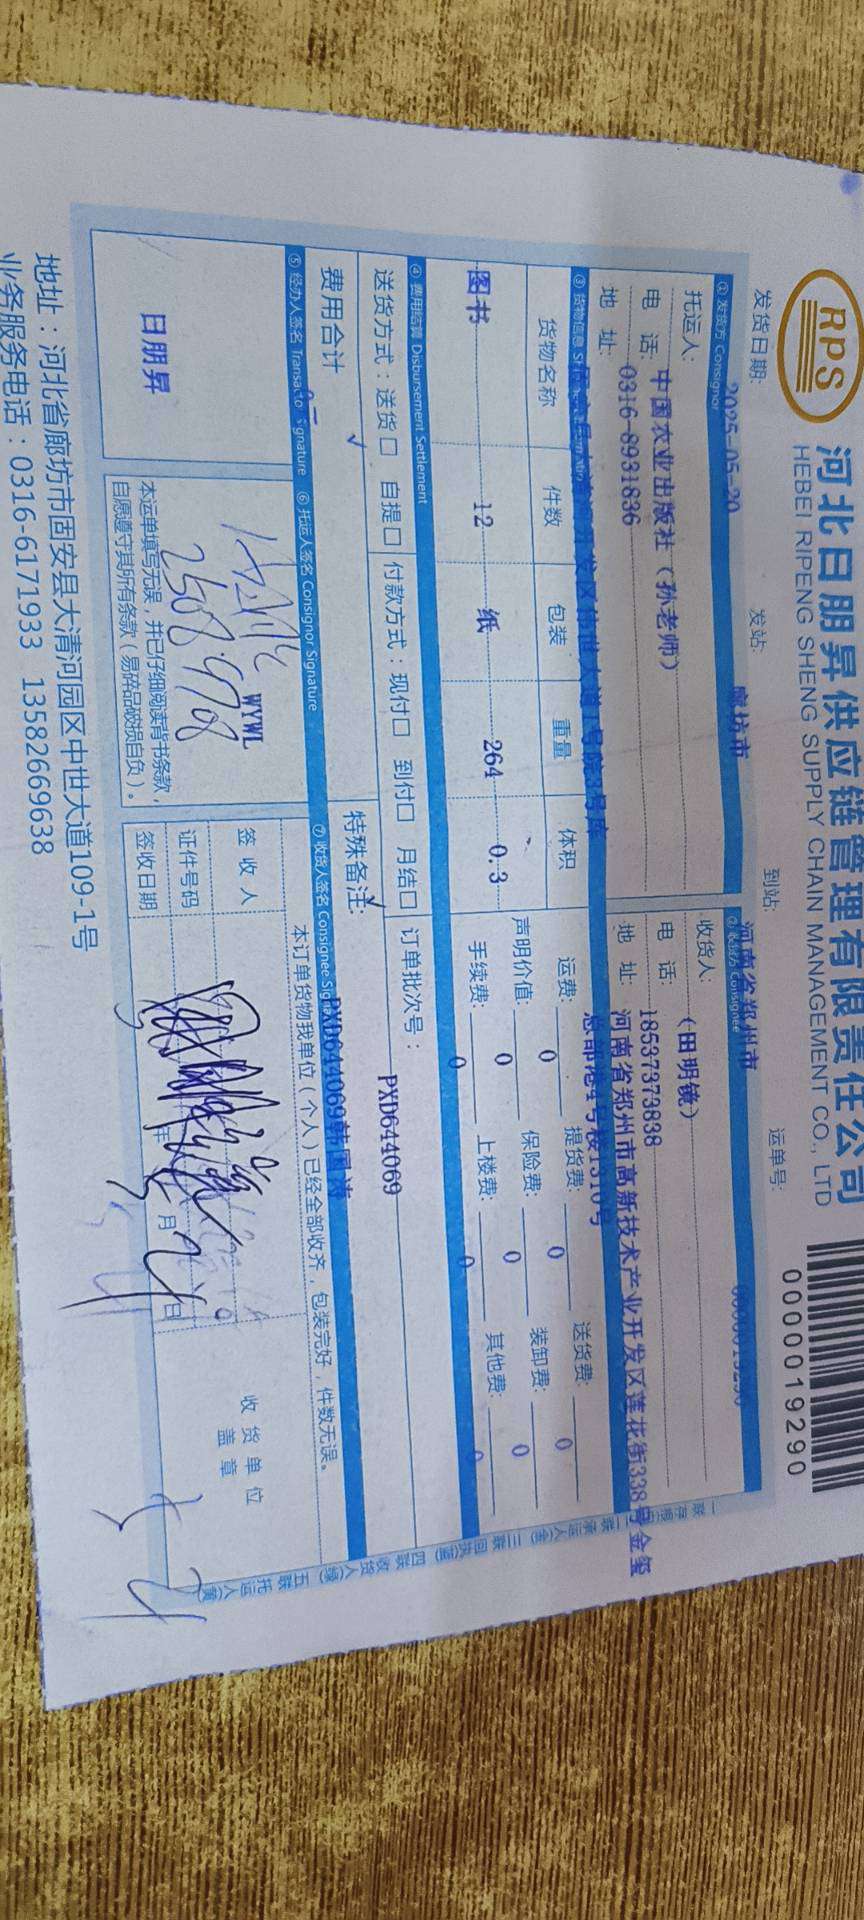 RPS
河北日朋昇供应链管理有限责任公司
HEBEI RIPENG SHENG SUPPLY CHAIN MANAGEMENT CO., LTD
0000019290
发货日期: 2025-05-20 发站: 廊坊市 到站: 河南省郑州市 运单号: 0000019290
① 发货方 Consignor
托运人: 中国农业出版社（孙老师）
电 话: 0316-8931836
地 址:
② 收货方 Consignee
收货人: （田明镜）
电 话: 18537373838
地 址: 河南省郑州市高新技术产业开发区莲花街338号金玺
总部港4号楼1310号
③ 货物信息
货物名称 件数 包装 重量 体积
图书 12 纸 264 0.3
运费: 0 提货费: 0 送货费: 0
声明价值: 0 保险费: 0 装卸费: 0
手续费: 0 上楼费: 0 其他费: 0
④ 费用结算 Disbursement Settlement
送货方式：送货□ 自提□ 付款方式：现付□ 到付□ 月结□ 订单批次号： PXD644069
费用合计 特殊备注: PXD644069韩国涛
⑤ 经办人签名 ⑥ 托运人签名 Consignor Signature ⑦ 收货人签名 Consignee
日朋昇
WYWL
本运单填写无误，并已仔细阅读背书条款，
自愿遵守其所有条款（易碎品破损自负）。
本订单货物我单位（个人）已经全部收齐，包装完好，件数无误。
签 收 人
证件号码
签收日期 年 月 日
收 货 单 位
盖 章
一联存根 二联承运人(金) 三联回执(蓝) 四联收货人(绿) 五联托运人(黄)
地址：河北省廊坊市固安县大清河园区中世大道109-1号
业务服务电话：0316-6171933 13582669638